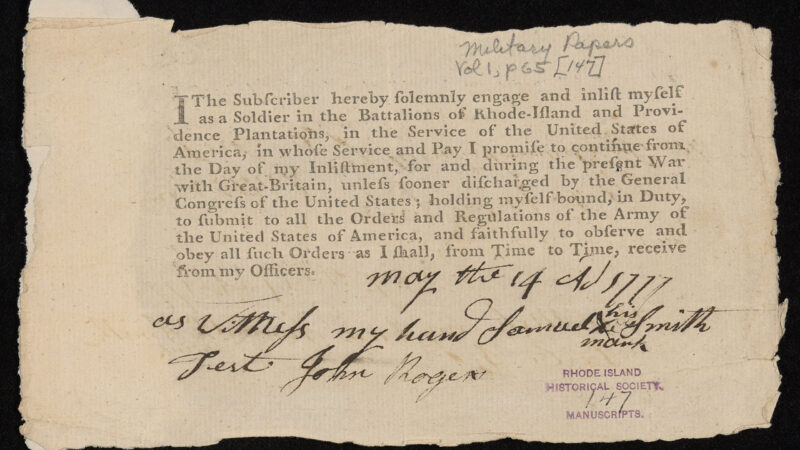 Military Papers
Vol 1, p 65 [147]
I The Subſcriber hereby ſolemnly engage and inliſt myſelf
as a Soldier in the Battalions of Rhode-Iſland and Provi-
dence Plantations, in the Service of the United States of
America, in whoſe Service and Pay I promiſe to continue from
the Day of my Inliſtment, for and during the preſent War
with Great-Britain, unleſs ſooner diſcharged by the General
Congreſs of the United States; holding myſelf bound, in Duty,
to ſubmit to all the Orders and Regulations of the Army of
the United States of America, and faithfully to obſerve and
obey all ſuch Orders as I ſhall, from Time to Time, receive
from my Officers.
may the 14 AD 1777
as Witneſs my hand Samuel his X Smith
mark
Test John Rogers
RHODE ISLAND
HISTORICAL SOCIETY.
147
MANUSCRIPTS.